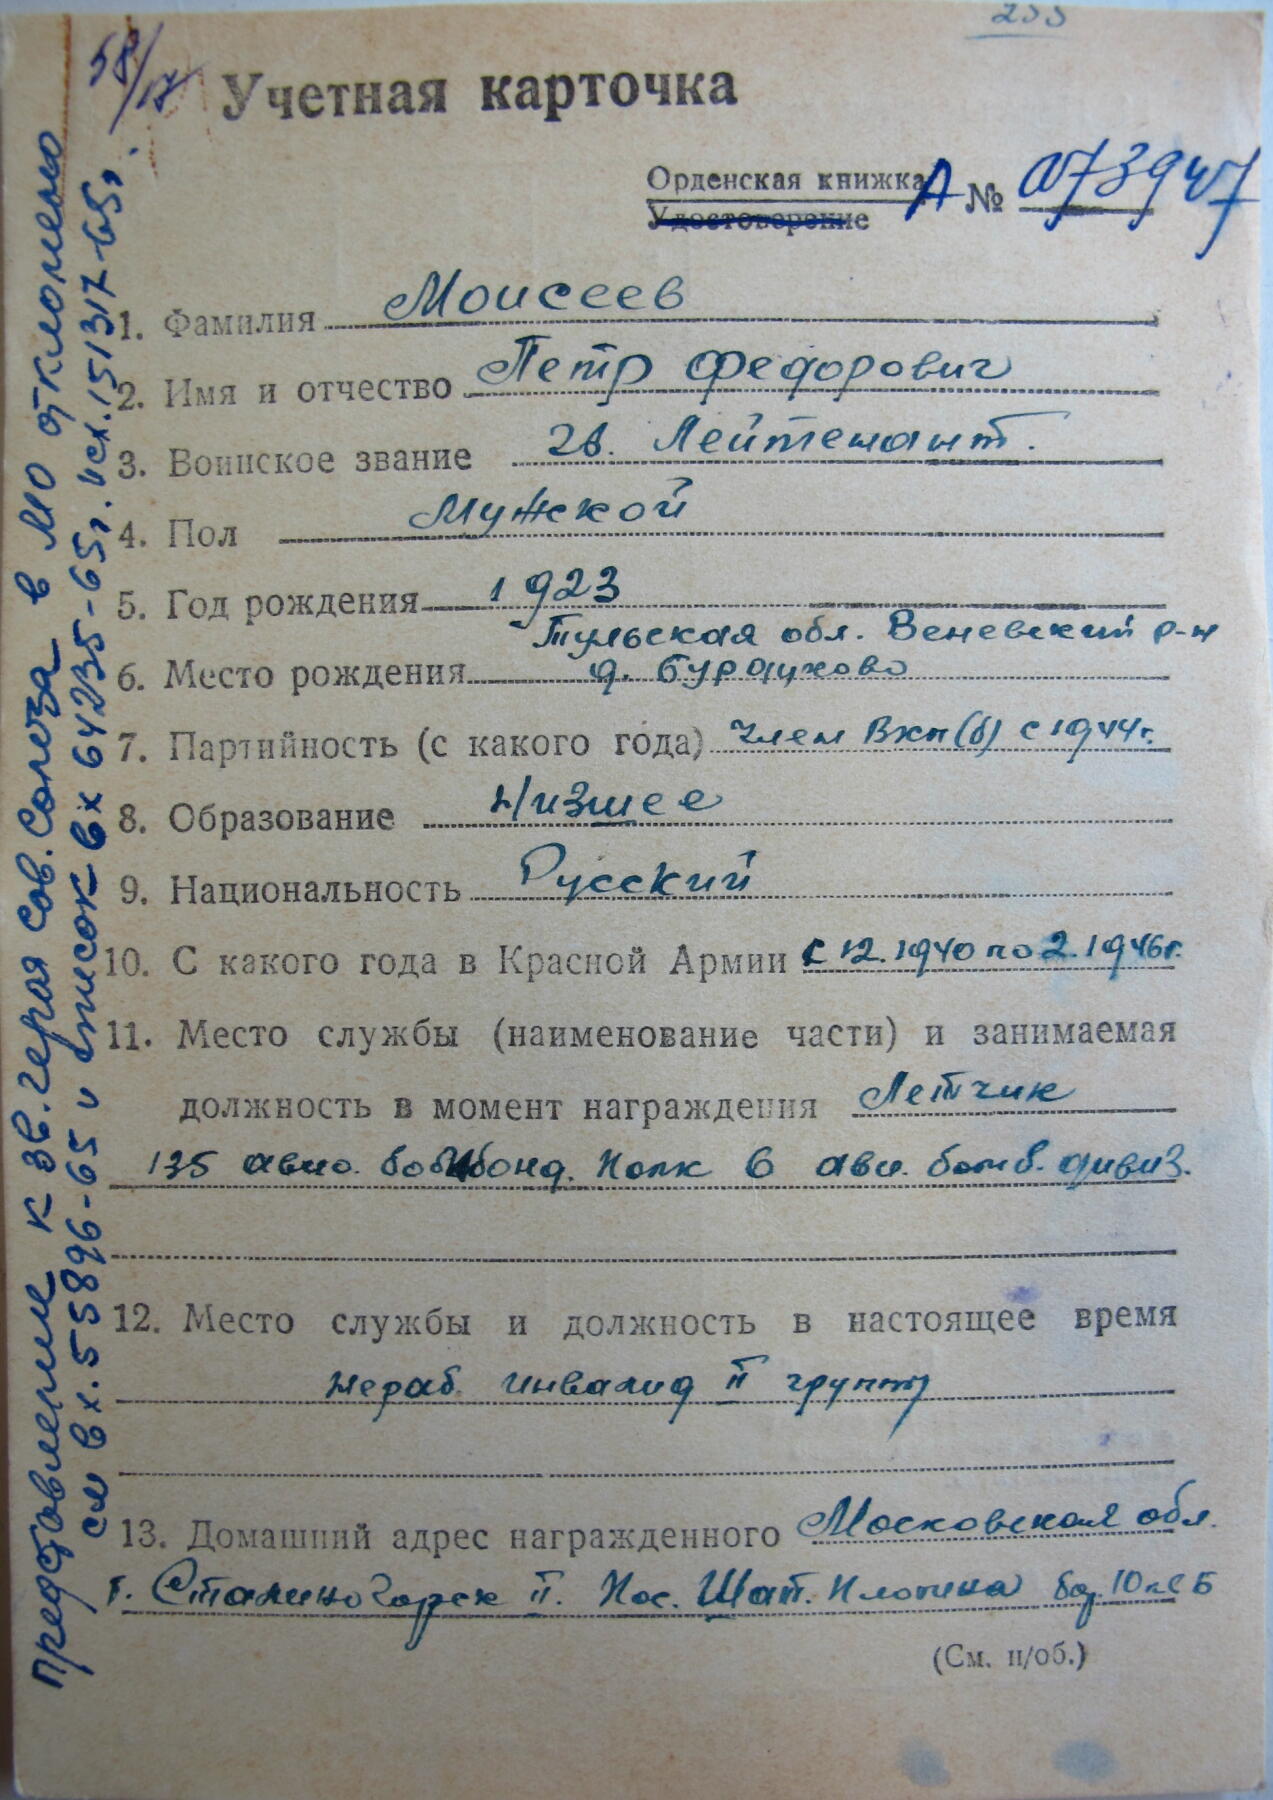 255
58/17
Учетная карточка
Орденская книжка А № 073947
Удостоверение
1. Фамилия Моисеев
2. Имя и отчество Петр Федорович
3. Воинское звание гв. Лейтенант.
4. Пол Мужской
5. Год рождения 1923
Тульская обл. Веневский р-н
6. Место рождения д. Бурдуково
7. Партийность (с какого года) Член ВКП(б) с 1944г.
8. Образование Низшее
9. Национальность Русский
10. С какого года в Красной Армии с 12.1940 по 2.1946г.
11. Место службы (наименование части) и занимаемая
должность в момент награждения Летчик
135 авио. бомбонд. Полк 6 ави. бомб. дивиз.
12. Место службы и должность в настоящее время
нераб. инвалид II группы
13. Домашний адрес награжденного Московская обл.
г. Сталиногорск II. Пос. Шат. Плотина 10 кв Б
(См. н/об.)
Представление к зв. героя Сов. Союза в МО отклонено
см вх. 55896-65 и список вх 64235-65г. исх. 151317-65г.